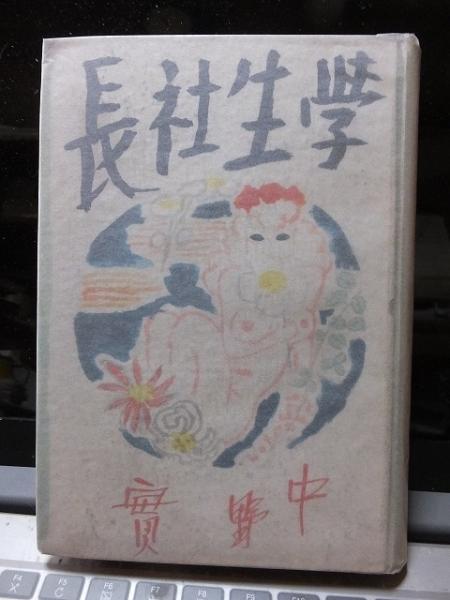 學生社長
中野實
F4 F5 F6 F7